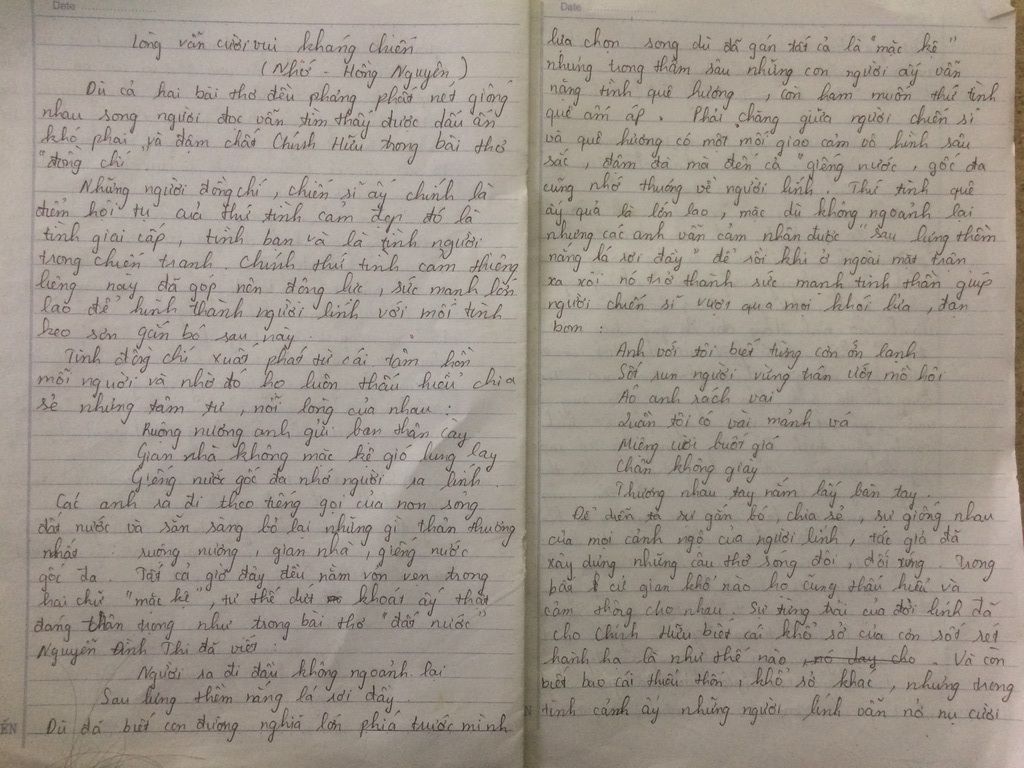 Date
Lòng vẫn cười vui kháng chiến
(Nhớ - Hồng Nguyên)
Dù cả hai bài thơ đều phảng phất nét giống
nhau song người đọc vẫn tìm thấy được dấu ấn
khó phai và đậm chất Chính Hữu trong bài thơ
"đồng chí"
Những người đồng chí, chiến sĩ ấy chính là
điểm hội tụ của thứ tình cảm đẹp đó là
tình giai cấp, tình bạn và là tình người
trong chiến tranh. Chính thứ tình cảm thiêng
liêng này đã góp nên động lực, sức mạnh lớn
lao để hình thành người lính với mối tình
keo sơn gắn bó sau này.
Tình đồng chí xuất phát từ cái tâm hồn
mỗi người và nhờ đó họ luôn thấu hiểu chia
sẻ những tâm tư, nỗi lòng của nhau:
Ruộng nương anh gửi bạn thân cày
Gian nhà không mặc kệ gió lung lay
Giếng nước gốc đa nhớ người ra lính.
Các anh ra đi theo tiếng gọi của non sông
đất nước và sẵn sàng bỏ lại những gì thân thương
nhất: ruộng nương, gian nhà, giếng nước
gốc đa. Tất cả giờ đây đều nằm vỏn vẹn trong
hai chữ "mặc kệ", tư thế dứt khoát ấy thật
đáng trân trọng như trong bài thơ "đất nước"
Nguyễn Đình Thi đã viết:
Người ra đi đầu không ngoảnh lại
Sau lưng thềm nắng lá rơi đầy.
Dù đã biết con đường nghĩa lớn phía trước mình
ẾN
Date
lựa chọn song dù đã gán tất cả là "mặc kệ"
nhưng trong thâm sâu những con người ấy vẫn
nặng tình quê hương, còn ham muốn thứ tình
quê ấm áp. Phải chăng giữa người chiến sĩ
và quê hương có một mối giao cảm vô hình sâu
sắc, đậm đà mà đến cả "giếng nước, gốc đa
cũng nhớ thương về người lính. Thứ tình quê
ấy quả là lớn lao, mặc dù không ngoảnh lại
nhưng các anh vẫn cảm nhận được "sau lưng thềm
nắng lá rơi đầy" để rồi khi ở ngoài mặt trận
xa xôi nó trở thành sức mạnh tinh thần giúp
người chiến sĩ vượt qua mọi khói lửa, đạn
bom:
Anh với tôi biết từng cơn ớn lạnh
Sốt run người vừng trán ướt mồ hôi
Áo anh rách vai
Quần tôi có vài mảnh vá
Miệng cười buốt giá
Chân không giày
Thương nhau tay nắm lấy bàn tay.
Để diễn tả sự gắn bó, chia sẻ, sự giống nhau
của mọi cảnh ngộ của người lính, tác giả đã
xây dựng những câu thơ sóng đôi, đối xứng. Trong
bất cứ gian khổ nào họ cũng thấu hiểu và
cảm thông cho nhau. Sự từng trải của đời lính đã
cho Chính Hữu biết cái khổ sở của cơn sốt rét
hành hạ là như thế nào cho. Và còn
biết bao cái thiếu thốn, khổ sở khác, nhưng trong
tình cảnh ấy những người lính vẫn nở nụ cười